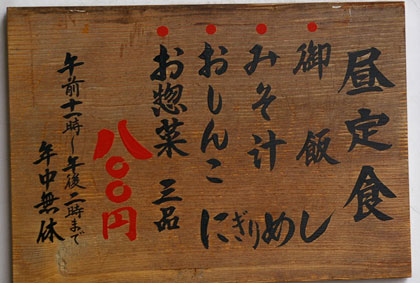 昼定食
御飯
みそ計
おしんこ
にぎりめし
お惣菜 三品
八〇〇円
午前十一時~午後二時まで
年中無休